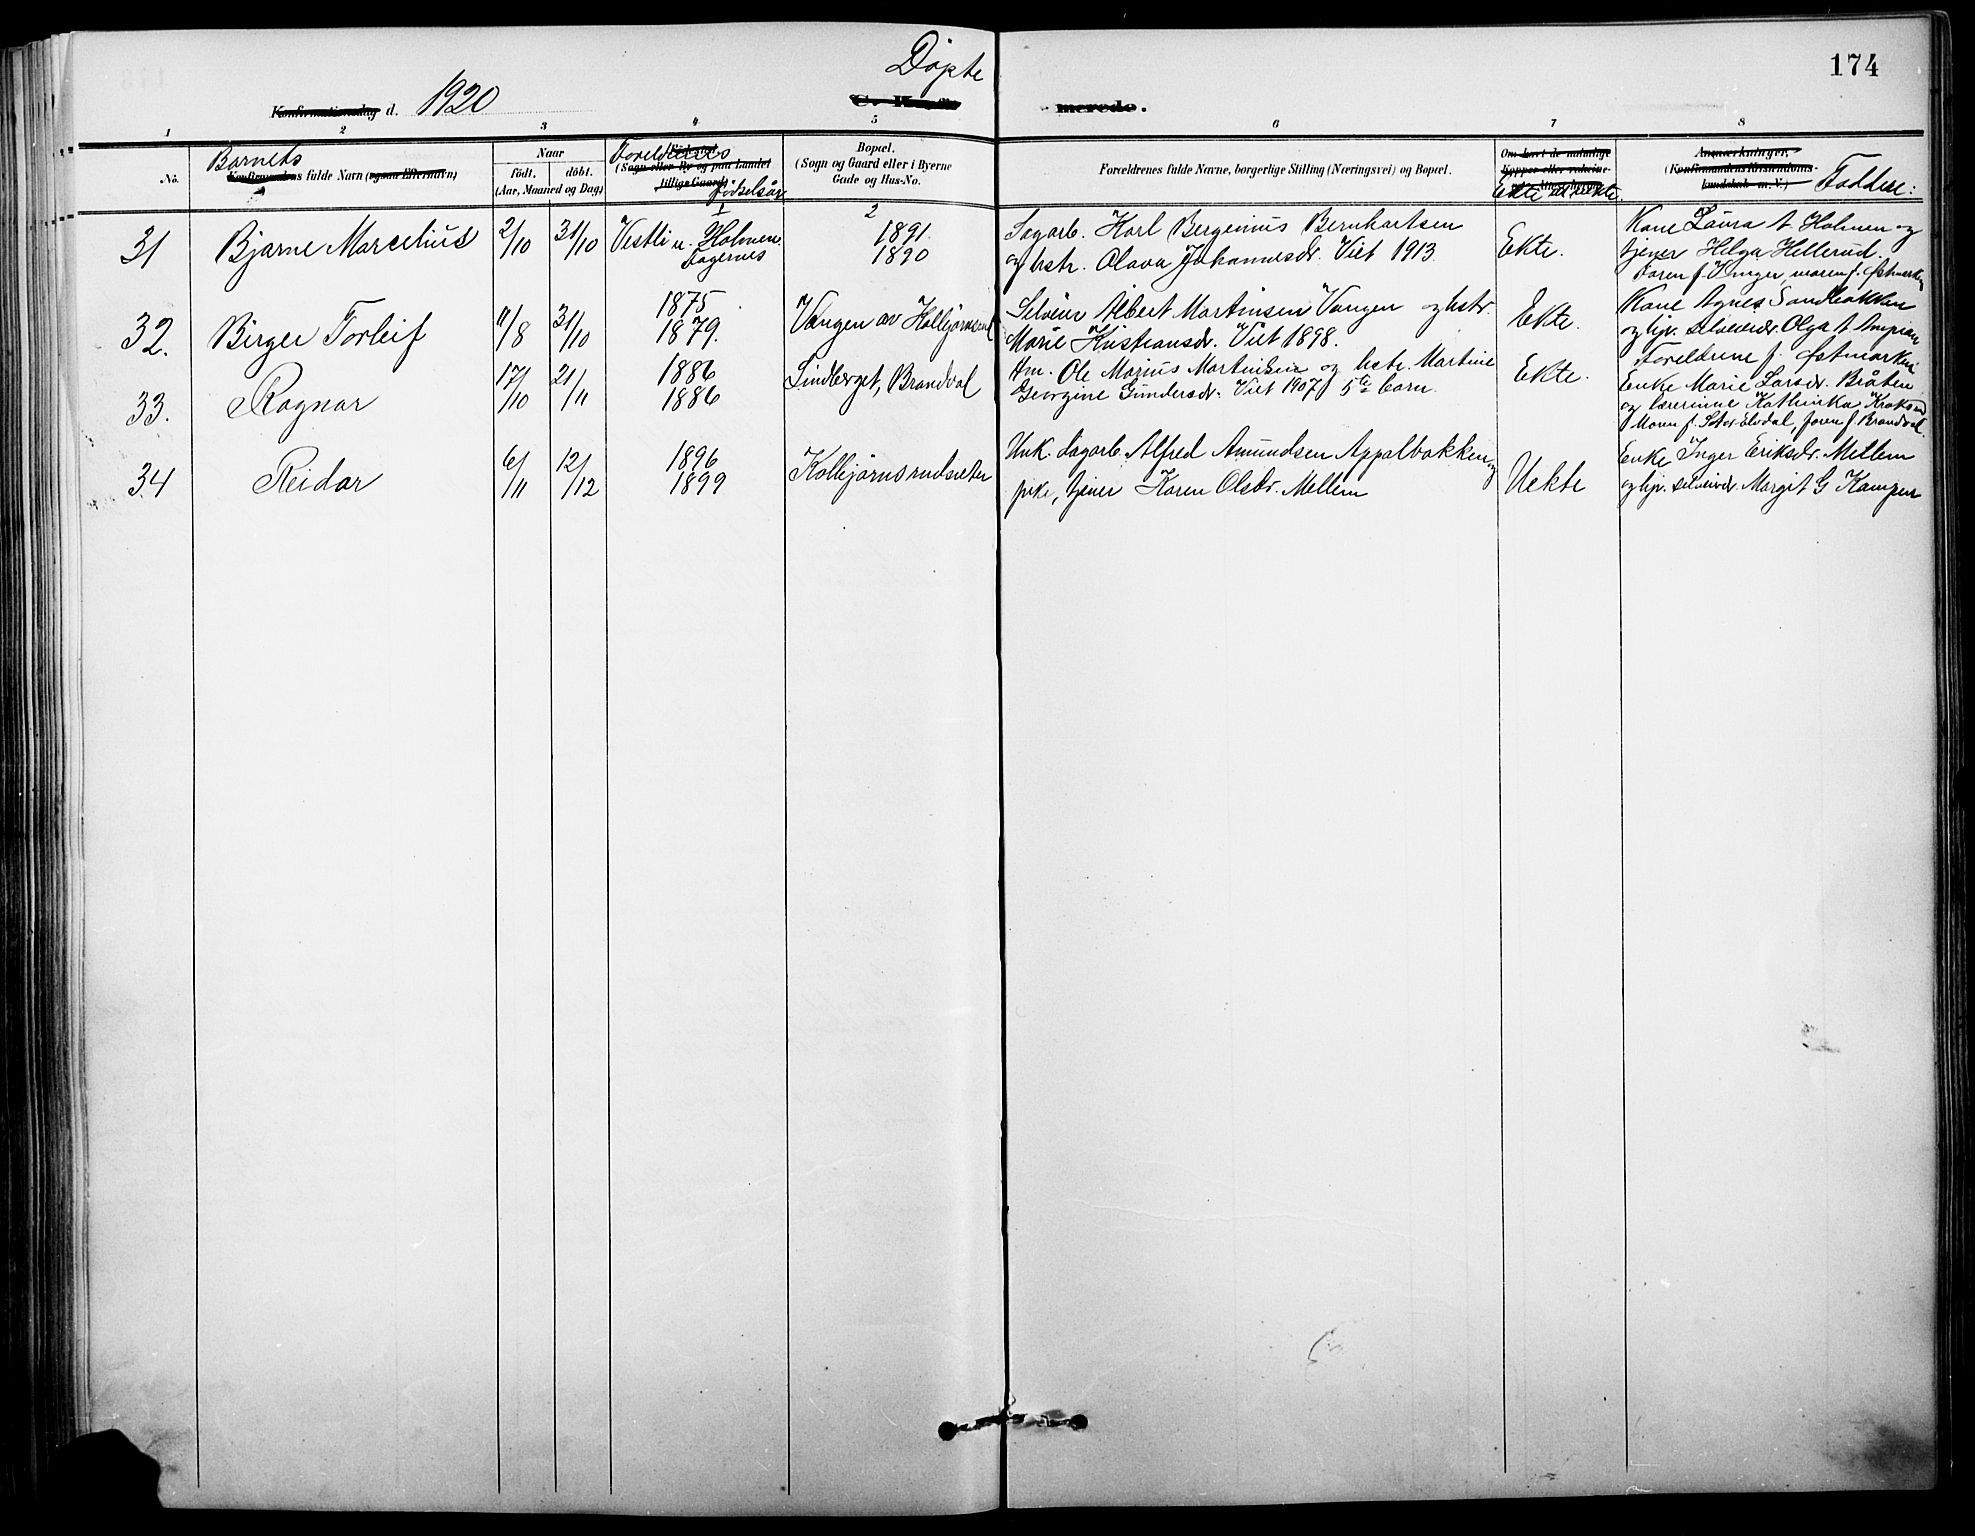 174
Døpte
Konfirmationsdag d. 1920
merede.
1
2
3
4
5
6
7
8
No.
Barnets
Konfirmandens fulde Navn (ogsaa Efternavn)
Naar
födt.
döbt.
(Aar, Maaned og Dag)
Foreldrenes
Födested
(Sogn eller By og paa Landet
tillige Gaard)
Fødselsår
1
Bopæl.
(Sogn og Gaard eller i Byerne
Gade og Hus-No.
2
Forældrenes fulde Navne, borgerlige Stilling (Næringsvei) og Bopæl.
Om havt de naturlige
Kopper eller vakcine-
Ekte el. uekte.
Anmærkninger.
(Konfirmandens Kristendoms-
kundskab m. V.)
Faddere:
31
Bjarne Marcelius
2/10
31/10
Vestli u. Holmen
Dagernes
1891
1890
Sagarb. Karl Bergenius Bernhartsen
og hstr. Olava Johannesdr. Viet 1913
Ekte.
Kone Laura A. Holmen og
tjener Helga Hillerud.
Faren f. Vinger, moren f. Østmarken
32.
Birger Torleif
11/8
31/10
1875
1879.
Vangen av Kolbjørnsrud
Selveier Albert Martinsen Vangen og hstr.
Marie Kristiansdr. Viet 1898.
Ekte.
Kone Agnes Sandbakken
og hjv. selveierdr. Olga A.
Foreldrene f. Østmarken
33.
Ragnar
17/10
21/11
1886
1886
Lindberget, Brandval
Hm. Ole Marius Martinsen og hstr. Martine
Georgine Gundersdr. Viet 1907 5te barn.
Ekte.
Enke Marie Larsdr. Bråten
og lærerinne Kathinka
Moren f. Stor Elvdal, faren f. Brandval.
34
Reidar
6/11
12/12
1896
1899
Kolbjørnsrudseter
Unk. sagarb. Alfred Amundsen Appalbakken og
pike, tjener Karen Olsdr. Mellem
Uekte
Enke Inger Eriksdr. Mellem
og hjv. selveierdr. Margit G. Kampen